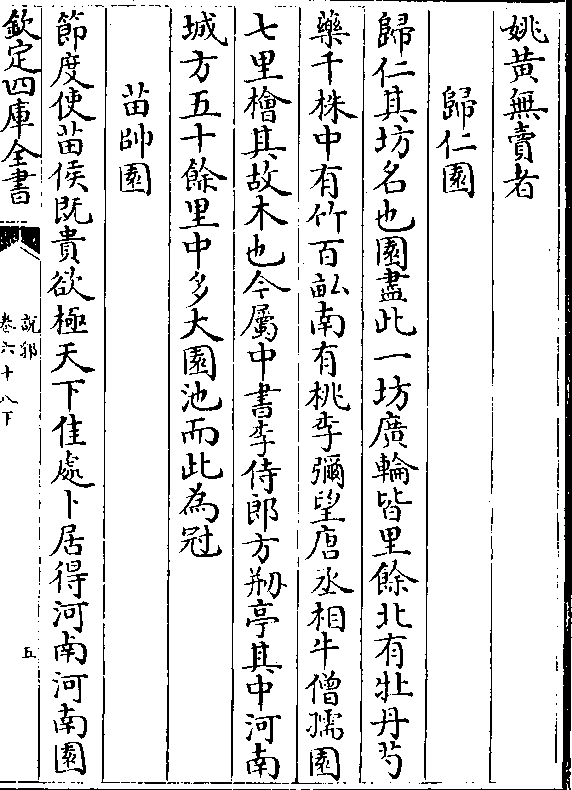 姚黄無賣者
歸仁園
歸仁其坊名也園盡此一坊廣輪皆里餘北有牡丹芍
藥千株中有竹百畝南有桃李彌望唐丞相牛僧孺園
七里檜其故木也今屬中書李侍郎方剏亭其中河南
城方五十餘里中多大園池而此為冠
苗帥園
節度使苗侯既貴欲極天下佳處卜居得河南河南園
欽定四庫全書
說郛
卷六十八下
五